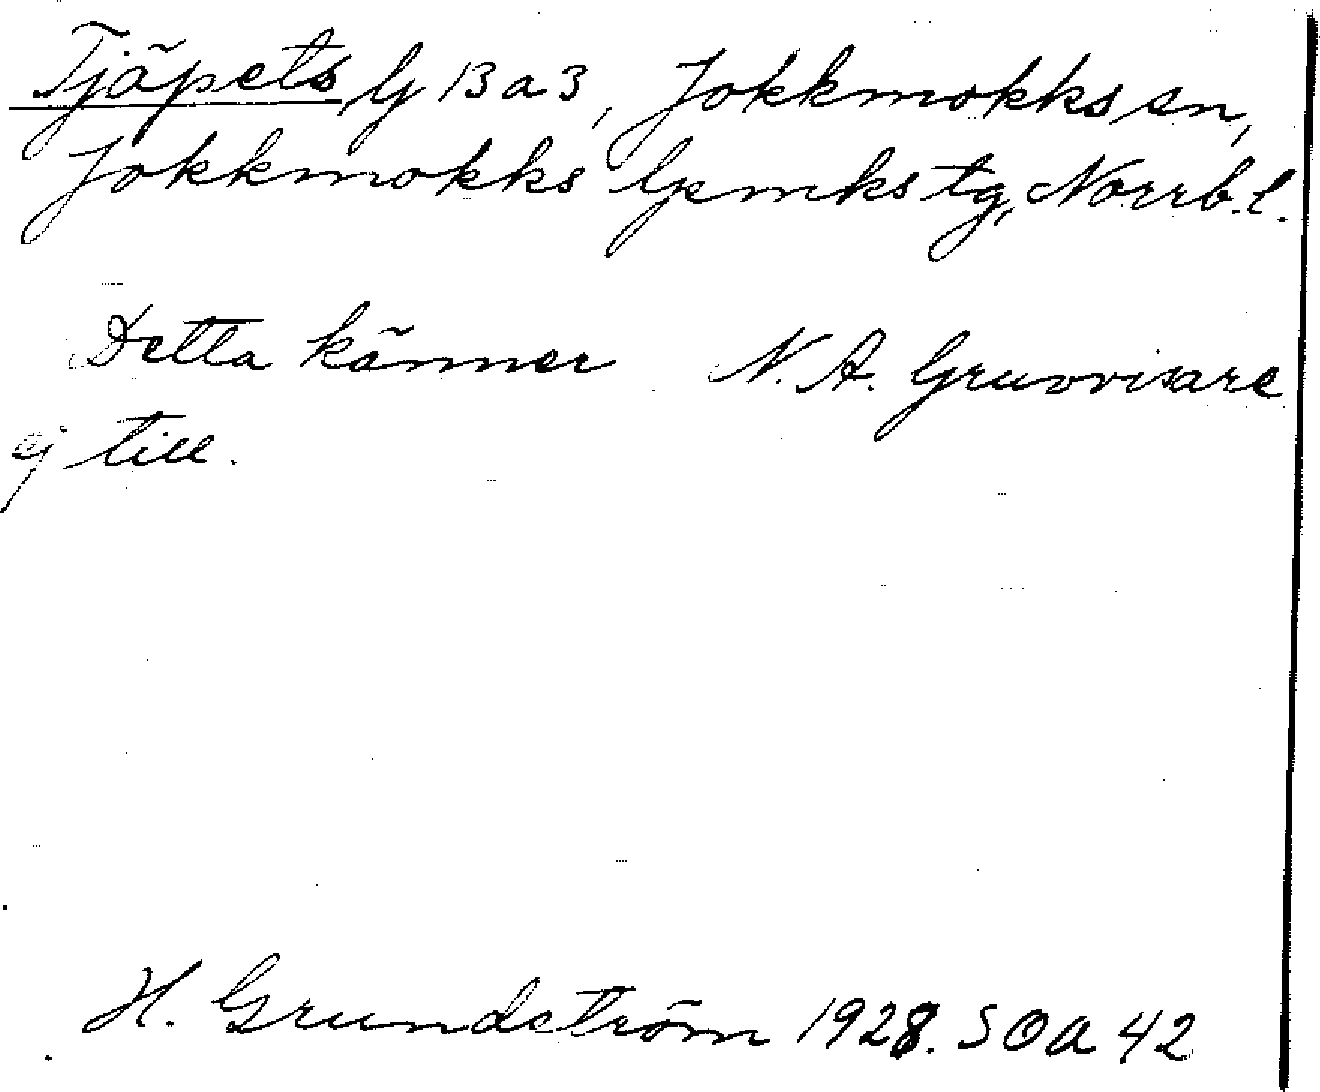 Tjäpets lj 13 a 3, Jokkmokks sn,
Jokkmokks lpmks tg, Norrb. l.
Detta känner N. A. Gruvvisare
ej till.
H. Grundström 1928. SOA 42